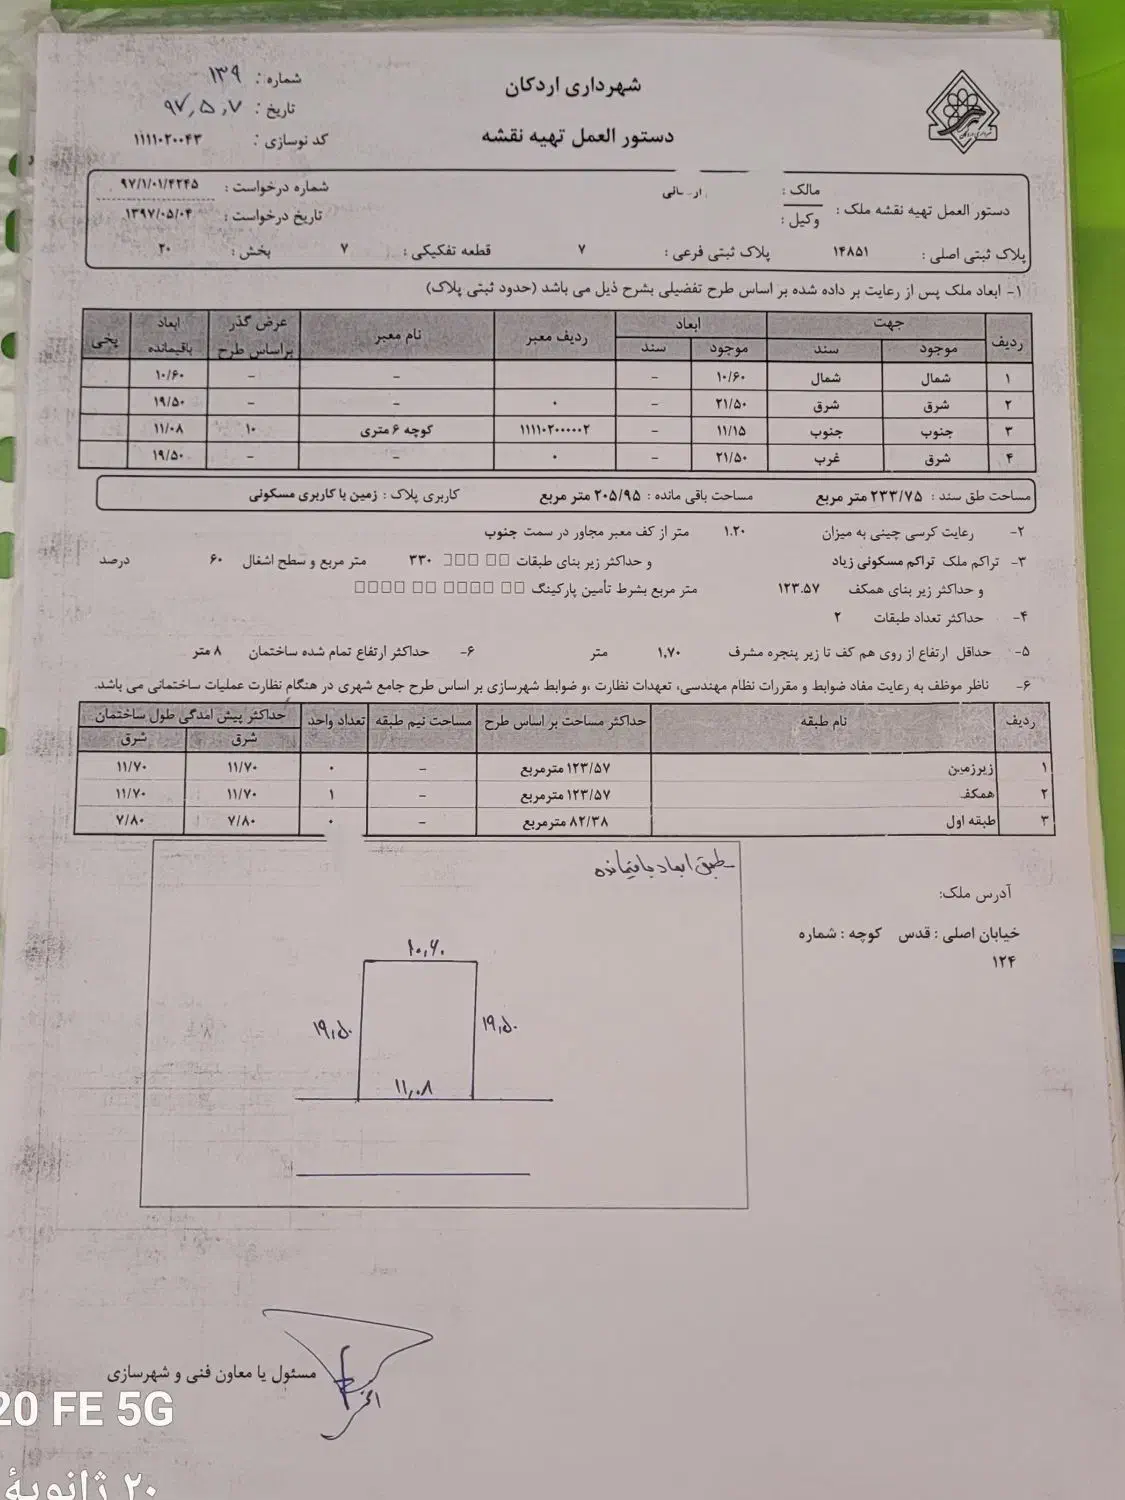 شهرداری اردکان
دستور العمل تهیه نقشه
شماره : ۱۳۹
تاریخ : ۹۷,۵,۷
کد نوسازی : ۱۱۱۱۰۲۰۰۴۳
دستور العمل تهیه نقشه ملک : مالک : وکیل :
شماره درخواست : ۹۷/۱/۰۱/۴۲۴۵
تاریخ درخواست : ۱۳۹۷/۰۵/۰۴
پلاک ثبتی اصلی : ۱۴۸۵۱ پلاک ثبتی فرعی : ۷ قطعه تفکیکی : ۷ بخش : ۲۰
۱- ابعاد ملک پس از رعایت بر داده شده بر اساس طرح تفضیلی بشرح ذیل می باشد (حدود ثبتی پلاک)
ردیف جهت ابعاد ردیف معبر نام معبر عرض گذر براساس طرح ابعاد باقیمانده پخی
موجود سند موجود سند
۱ شمال شمال ۱۰/۶۰ - - - ۱۰/۶۰
۲ شرق شرق ۲۱/۵۰ - ۰ - - ۱۹/۵۰
۳ جنوب جنوب ۱۱/۱۵ - ۱۱۱۱۰۲۰۰۰۰۰۲ کوچه ۶ متری ۱۰ ۱۱/۰۸
۴ شرق غرب ۲۱/۵۰ - ۰ - - ۱۹/۵۰
مساحت طق سند : ۲۳۳/۷۵ متر مربع مساحت باقی مانده : ۲۰۵/۹۵ متر مربع کاربری پلاک : زمین با کاربری مسکونی
۲- رعایت کرسی چینی به میزان ۱.۲۰ متر از کف معبر مجاور در سمت جنوب
۳- تراکم ملک تراکم مسکونی زیاد و حداکثر زیر بنای طبقات ۳۳۰ متر مربع و سطح اشغال ۶۰ درصد
و حداکثر زیر بنای همکف ۱۲۳.۵۷ متر مربع بشرط تأمین پارکینگ
۴- حداکثر تعداد طبقات ۲
۵- حداقل ارتفاع از روی هم کف تا زیر پنجره مشرف ۱.۷۰ متر ۶- حداکثر ارتفاع تمام شده ساختمان ۸ متر
۶- ناظر موظف به رعایت مفاد ضوابط و مقررات نظام مهندسی، تعهدات نظارت ،و ضوابط شهرسازی بر اساس طرح جامع شهری در هنگام نظارت عملیات ساختمانی می باشد.
ردیف نام طبقه حداکثر مساحت بر اساس طرح مساحت نیم طبقه تعداد واحد حداکثر پیش آمدگی طول ساختمان
شرق شرق
۱ زیرزمین ۱۲۳/۵۷ مترمربع - ۰ ۱۱/۷۰ ۱۱/۷۰
۲ همکف ۱۲۳/۵۷ مترمربع - ۱ ۱۱/۷۰ ۱۱/۷۰
۳ طبقه اول ۸۲/۳۸ مترمربع - ۰ ۷/۸۰ ۷/۸۰
- طبق ابعاد باقیمانده
۱۰,۶۰
۱۹,۵۰ ۱۹,۵۰
۱۱,۰۸
آدرس ملک:
خیابان اصلی : قدس کوچه : شماره
۱۲۴
مسئول یا معاون فنی و شهرسازی
20 FE 5G
۲۰ ژانویهٔ